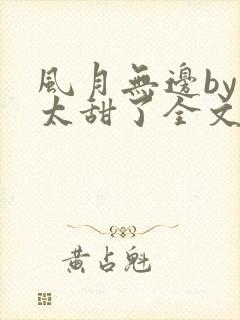 風月無邊by
太甜了全文
黃占魁